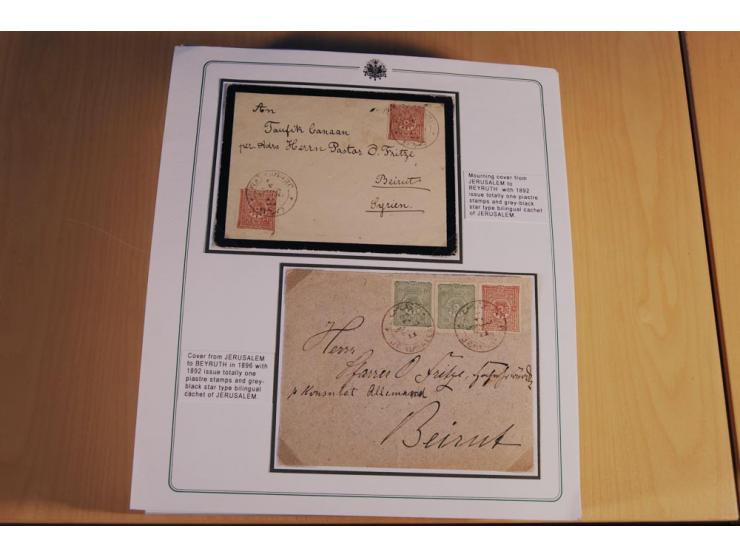 An
Taufik Canaan
per Adrs Herrn Pastor O. Fritze
Beirut
Syrien.
Mourning cover from
JERUSALEM to
BEYRUTH with 1892
issue totally one piastre
stamps and grey-black
star type bilingual cachet
of JERUSALEM.
Cover from JERUSALEM
to BEYRUTH in 1896 with
1892 issue totally one
piastre stamps and grey-
black star type bilingual
cachet of JERUSALEM.
Herrn
Pfarrer O Fritze,
p Konsulat Allemand
Beirut